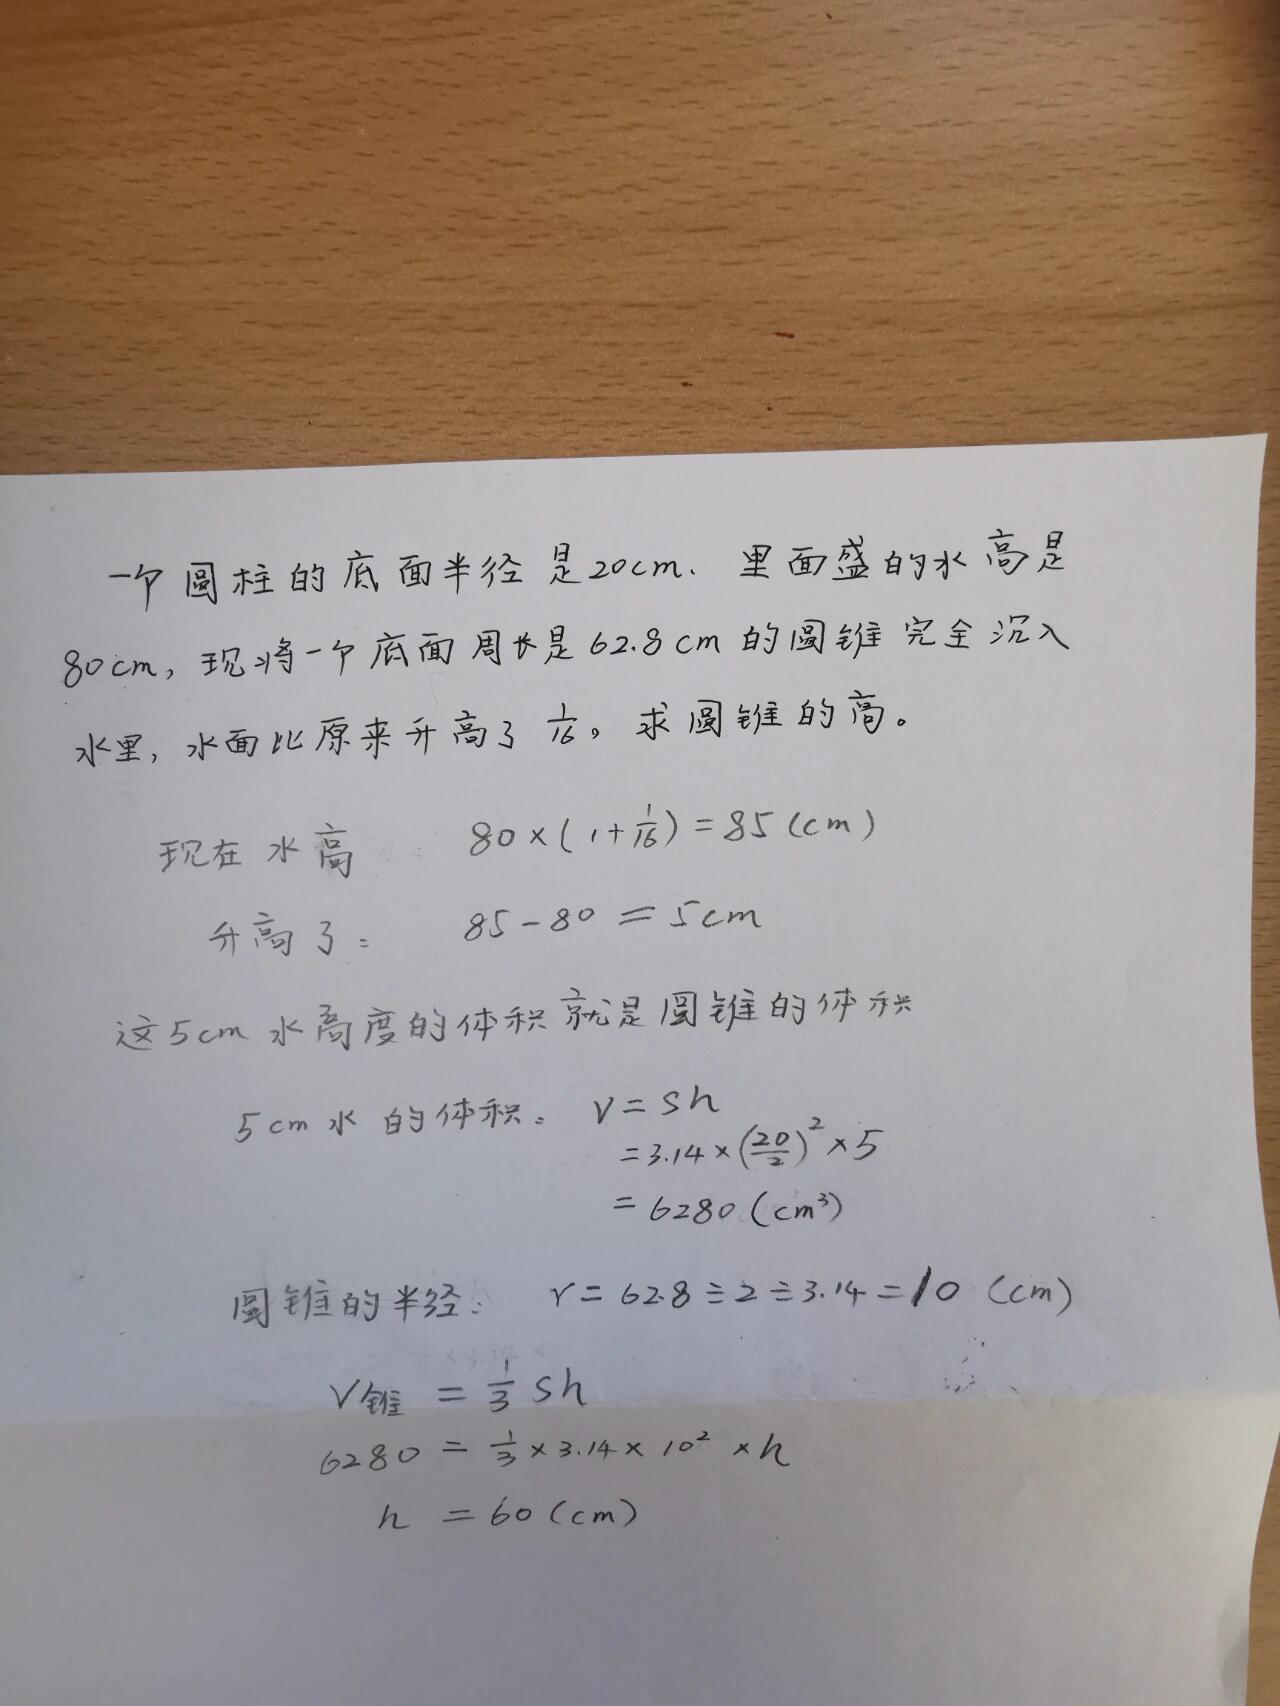 一个圆柱的底面半径是20cm. 里面盛的水高是
80cm, 现将一个底面周长是62.8cm的圆锥完全沉入
水里, 水面比原来升高了1/16。求圆锥的高。
现在水高 80×(1+1/16)=85(cm)
升高了: 85-80=5cm
这5cm水高度的体积就是圆锥的体积
5cm水的体积: V=sh
=3.14×(20/2)²×5
=6280(cm³)
圆锥的半径: r=62.8÷2÷3.14=10(cm)
V锥=1/3sh
6280=1/3×3.14×10²×h
h=60(cm)